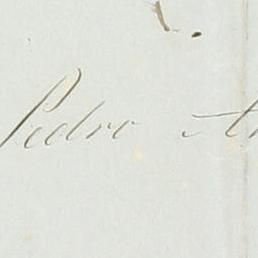 Pedro A